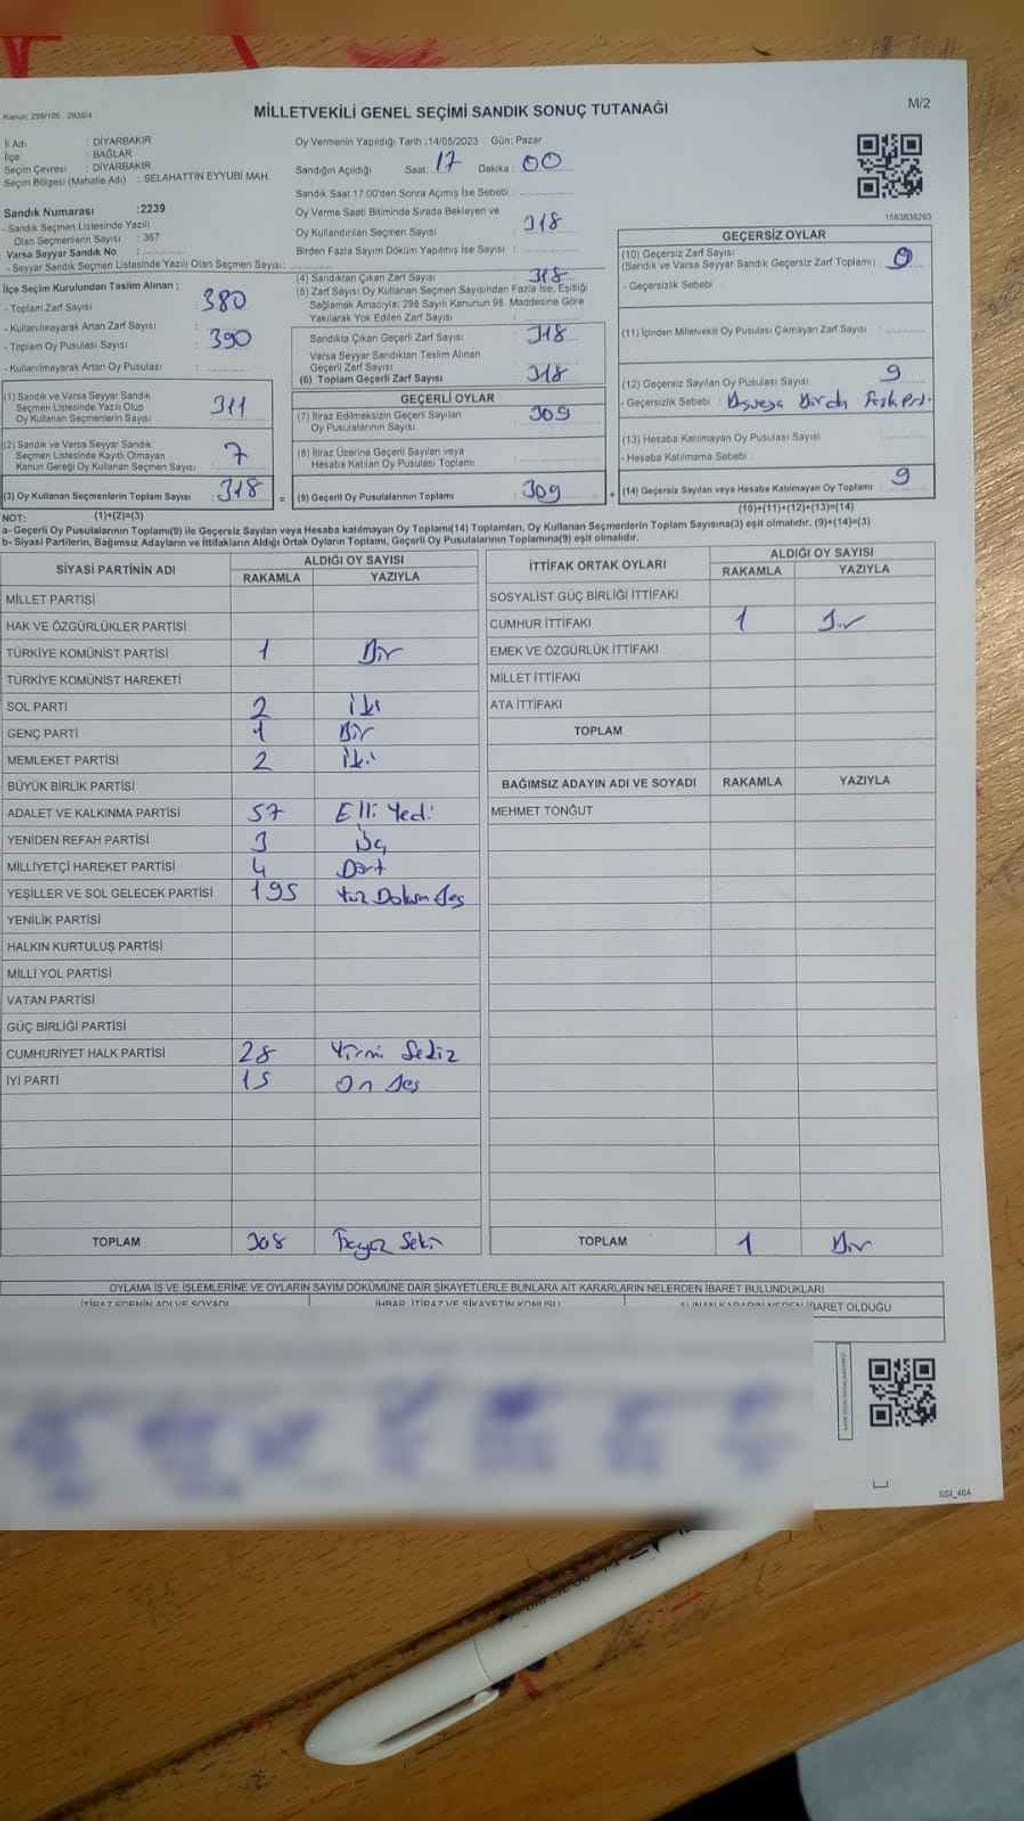 Kanun: 298/105 2839/4
MİLLETVEKİLİ GENEL SEÇİMİ SANDIK SONUÇ TUTANAĞI
M/2
İl Adı : DİYARBAKIR
İlçe : BAĞLAR
Seçim Çevresi : DİYARBAKIR
Seçim Bölgesi (Mahalle Adı) : SELAHATTİN EYYUBİ MAH.
Sandık Numarası :2239
- Sandık Seçmen Listesinde Yazılı
Olan Seçmenlerin Sayısı : 367
Varsa Seyyar Sandık No :
- Seyyar Sandık Seçmen Listesinde Yazılı Olan Seçmen Sayısı:
İlçe Seçim Kurulundan Teslim Alınan ;
- Toplam Zarf Sayısı : 380
- Kullanılmayarak Artan Zarf Sayısı :
- Toplam Oy Pusulası Sayısı : 390
- Kullanılmayarak Artan Oy Pusulası :
(1) Sandık ve Varsa Seyyar Sandık
Seçmen Listesinde Yazılı Olup
Oy Kullanan Seçmenlerin Sayısı : 311
(2) Sandık ve Varsa Seyyar Sandık
Seçmen Listesinde Kayıtlı Olmayan
Kanun Gereği Oy Kullanan Seçmen Sayısı : 7
(3) Oy Kullanan Seçmenlerin Toplam Sayısı : 318
(1)+(2)=(3)
Oy Vermenin Yapıldığı Tarih :14/05/2023 Gün: Pazar
Sandığın Açıldığı Saat: 17 Dakika : 00
Sandık Saat 17:00'den Sonra Açılmış İse Sebebi :
Oy Verme Saati Bitiminde Sırada Bekleyen ve
Oy Kullandırılan Seçmen Sayısı : 318
Birden Fazla Sayım Döküm Yapılmış İse Sayısı :
(4) Sandıktan Çıkan Zarf Sayısı : 318
(5) Zarf Sayısı Oy Kullanan Seçmen Sayısından Fazla İse, Eşitliği
Sağlamak Amacıyla; 298 Sayılı Kanunun 98. Maddesine Göre
Yakılarak Yok Edilen Zarf Sayısı :
Sandıkta Çıkan Geçerli Zarf Sayısı : 318
Varsa Seyyar Sandıktan Teslim Alınan
Geçerli Zarf Sayısı :
(6) Toplam Geçerli Zarf Sayısı : 318
GEÇERLİ OYLAR
(7) İtiraz Edilmeksizin Geçerli Sayılan
Oy Pusulalarının Sayısı : 309
(8) İtiraz Üzerine Geçerli Sayılan veya
Hesaba Katılan Oy Pusulası Toplamı :
= (9) Geçerli Oy Pusulalarının Toplamı : 309
1583836293
GEÇERSİZ OYLAR
(10) Geçersiz Zarf Sayısı
(Sandık ve Varsa Seyyar Sandık Geçersiz Zarf Toplamı) :
- Geçersizlik Sebebi :
(11) İçinden Milletvekili Oy Pusulası Çıkmayan Zarf Sayısı :
(12) Geçersiz Sayılan Oy Pusulası Sayısı : 9
- Geçersizlik Sebebi :
(13) Hesaba Katılmayan Oy Pusulası Sayısı :
- Hesaba Katılmama Sebebi :
+ (14) Geçersiz Sayılan veya Hesaba Katılmayan Oy Toplamı : 9
(10)+(11)+(12)+(13)=(14)
NOT:
a- Geçerli Oy Pusulalarının Toplamı(9) ile Geçersiz Sayılan veya Hesaba katılmayan Oy Toplamı(14) Toplamları, Oy Kullanan Seçmenlerin Toplam Sayısına(3) eşit olmalıdır. (9)+(14)=(3)
b- Siyasi Partilerin, Bağımsız Adayların ve İttifakların Aldığı Ortak Oyların Toplamı, Geçerli Oy Pusulalarının Toplamına(9) eşit olmalıdır.
SİYASİ PARTİNİN ADI
ALDIĞI OY SAYISI
RAKAMLA YAZIYLA
MİLLET PARTİSİ
HAK VE ÖZGÜRLÜKLER PARTİSİ
TÜRKİYE KOMÜNİST PARTİSİ 1 Bir
TÜRKİYE KOMÜNİST HAREKETİ
SOL PARTİ 2 iki
GENÇ PARTİ 1 Bir
MEMLEKET PARTİSİ 2 iki
BÜYÜK BİRLİK PARTİSİ
ADALET VE KALKINMA PARTİSİ 57 Elli Yedi
YENİDEN REFAH PARTİSİ 3 Üç
MİLLİYETÇİ HAREKET PARTİSİ 4 Dört
YEŞİLLER VE SOL GELECEK PARTİSİ 195 Yüz Doksan Beş
YENİLİK PARTİSİ
HALKIN KURTULUŞ PARTİSİ
MİLLİ YOL PARTİSİ
VATAN PARTİSİ
GÜÇ BİRLİĞİ PARTİSİ
CUMHURİYET HALK PARTİSİ 28 Yirmi Sekiz
İYİ PARTİ 15 On Beş
TOPLAM 308
İTTİFAK ORTAK OYLARI
ALDIĞI OY SAYISI
RAKAMLA YAZIYLA
SOSYALİST GÜÇ BİRLİĞİ İTTİFAKI
CUMHUR İTTİFAKI 1 Bir
EMEK VE ÖZGÜRLÜK İTTİFAKI
MİLLET İTTİFAKI
ATA İTTİFAKI
TOPLAM
BAĞIMSIZ ADAYIN ADI VE SOYADI RAKAMLA YAZIYLA
MEHMET TONĞUT
TOPLAM 1 Bir
OYLAMA İŞ VE İŞLEMLERİNE VE OYLARIN SAYIM DÖKÜMÜNE DAİR ŞİKAYETLERLE BUNLARA AİT KARARLARIN NELERDEN İBARET BULUNDUKLARI
İTİRAZ EDENİN ADI VE SOYADI İHBAR, İTİRAZ VE ŞİKAYETİN KONUSU ALINAN KARARIN NEDEN İBARET OLDUĞU
SSI_404